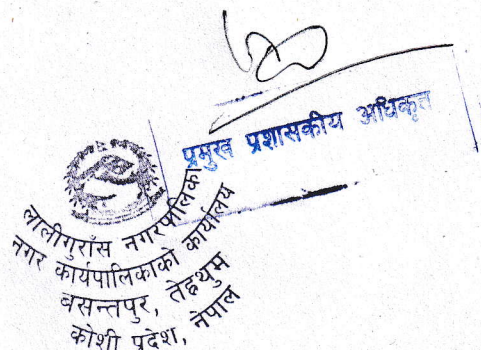 प्रमुख प्रशासकीय अधिकृत
लालीगुराँस नगरपालिका
नगर कार्यपालिकाको कार्यालय
बसन्तपुर, तेह्रथुम
कोशी प्रदेश, नेपाल